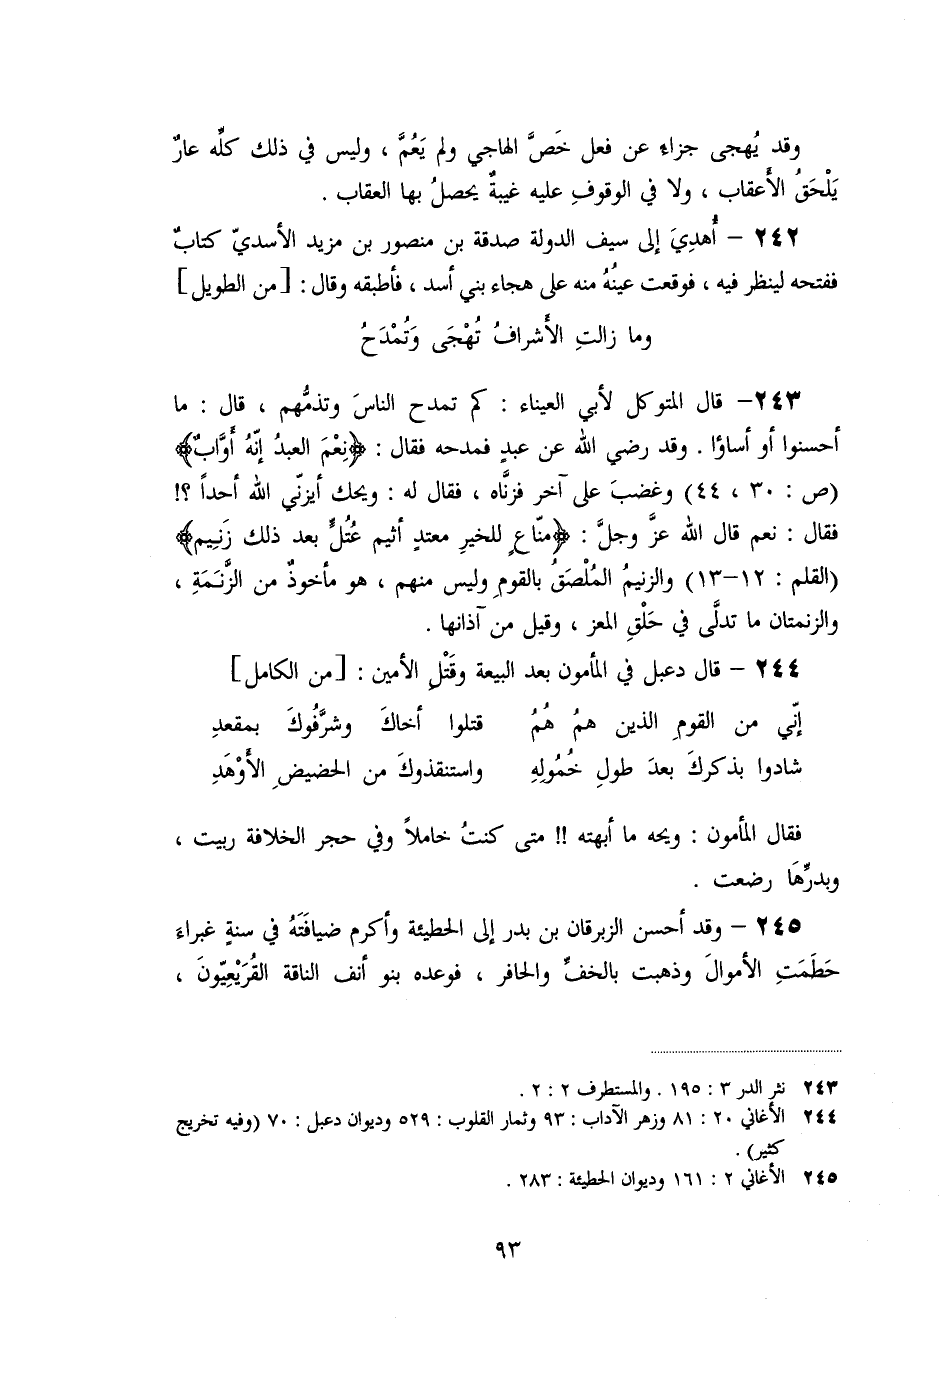 وقد يُهجى جزاء عن فعل خَصَّ الهاجي ولم يَعُمَّ ، وليس في ذلك كلِّه عارٌ
يَلْحَقُ الأَعقاب ، ولا في الوقوفِ عليه غيبةٌ يحصلُ بها العقاب .
٢٤٢ – أُهدِيَ إلى سيف الدولة صدقة بن منصور بن مزيد الأسديّ كتابٌ
ففتحه لينظر فيه ، فوقعت عينُهُ منه على هجاء بني أسد ، فأطبقه وقال : [من الطويل]
وما زالتِ الأَشرافُ تُهْجَى وَتُمْدَحُ
٢٤٣– قال المتوكل لأبي العيناء : كم تمدح الناسَ وتذمُّهم ، قال : ما
أحسنوا أو أساؤا . وقد رضي الله عن عبدٍ فمدحه فقال : ﴿نِعْمَ العبدُ إنّهُ أَوَّابٌ﴾
(ص : ٣٠ ، ٤٤) وغضبَ على آخر فزنَّاه ، فقال له : ويحك أيزنّي الله أحداً ؟!
فقال : نعم قال الله عزَّ وجلَّ : ﴿منّاعٍ للخيرِ معتدٍ أثيم عُتُلٍّ بعد ذلك زَنِيم﴾
(القلم : ١٢–١٣) والزنيمُ المُلْصَقُ بالقومِ وليس منهم ، هو مأخوذٌ من الزَّنَمَةِ ،
والزنمتان ما تدلَّى في حَلْقِ المعز ، وقيل من آذانها .
٢٤٤ – قال دعبل في المأمون بعد البيعة وقَتْلِ الأمين : [من الكامل]
إنّي من القومِ الذين همُ هُمُ قتلوا أخاكَ وشرَّفُوكَ بمقعدِ
شادوا بذكركَ بعدَ طولِ خُمُولِهِ واستنقذوكَ من الحضيضِ الأَوْهَدِ
فقال المأمون : ويحه ما أبهته !! متى كنتُ خاملاً وفي حجر الخلافة ربيت ،
وبدرِّهَا رضعت .
٢٤٥ – وقد أحسن الزبرقان بن بدر إلى الحطيئة وأكرم ضيافَتَهُ في سنةٍ غبراءَ
حَطَمَتِ الأموالَ وذهبت بالخفِّ والحافر ، فوعده بنو أنف الناقة القُرَيْعِيّونَ ،
٢٤٣ نثر الدر ٣ : ١٩٥ . والمستطرف ٢ : ٢ .
٢٤٤ الأغاني ٢٠ : ٨١ وزهر الآداب : ٩٣ وثمار القلوب : ٥٢٩ وديوان دعبل : ٧٠ (وفيه تخريج
كثير) .
٢٤٥ الأغاني ٢ : ١٦١ وديوان الحطيئة : ٢٨٣ .
٩٣